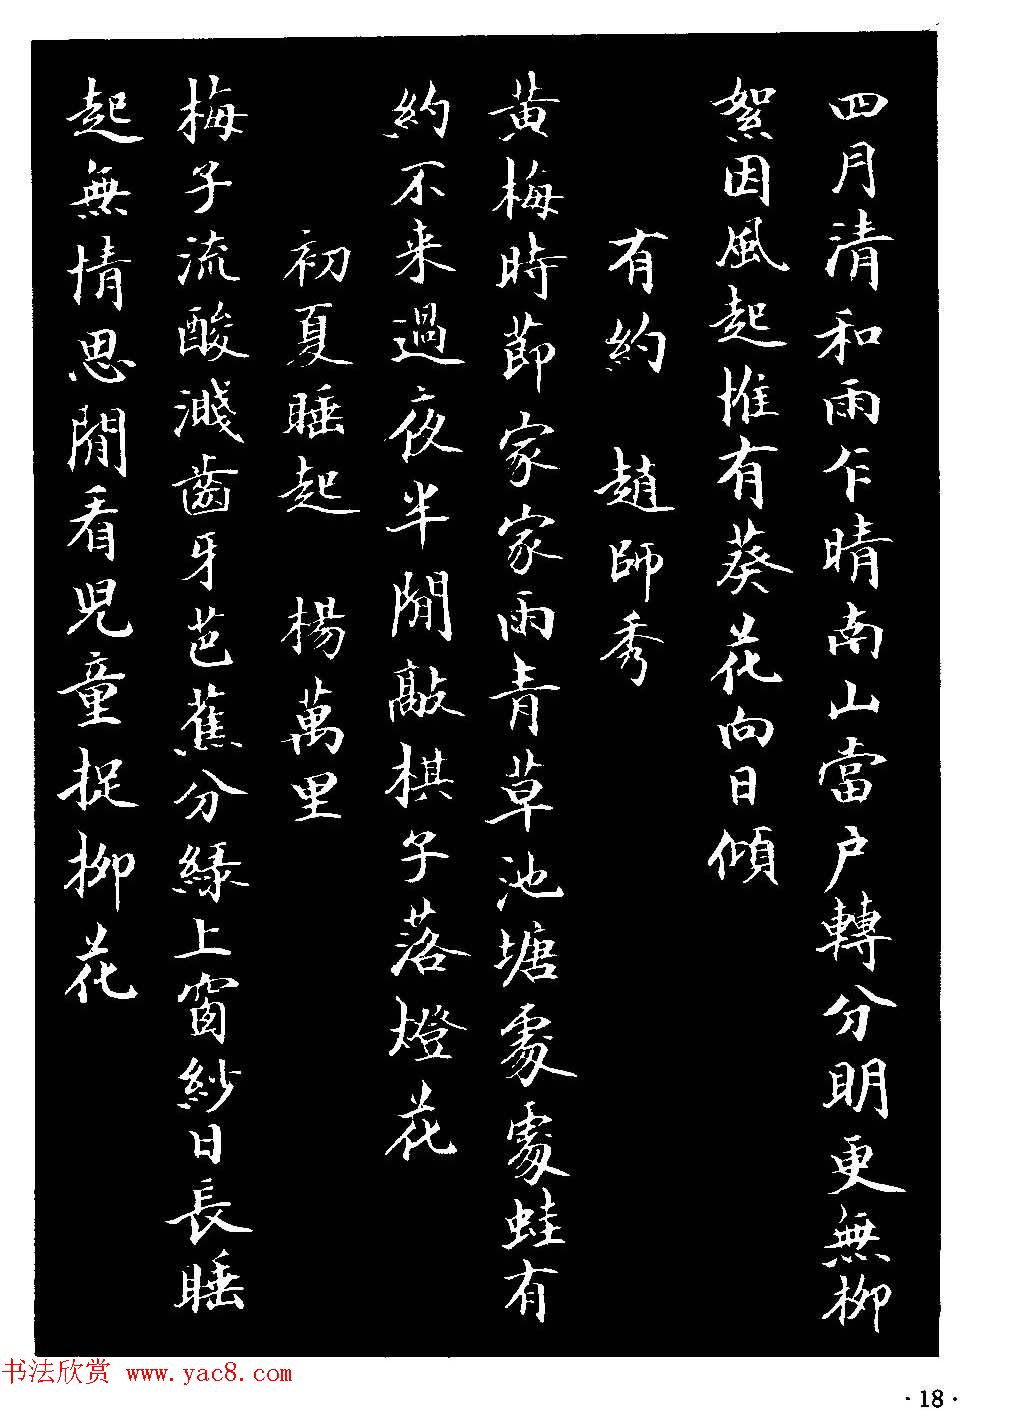 四月清和雨乍晴南山當户轉分明更無柳
絮因風起惟有葵花向日傾
有約　趙師秀
黄梅時節家家雨青草池塘處處蛙有
約不来過夜半閒敲棋子落燈花
初夏睡起　楊萬里
梅子流酸濺齒牙芭蕉分緑上窗紗日長睡
起無情思閒看児童捉柳花
书法欣赏 www.yac8.com
·18·